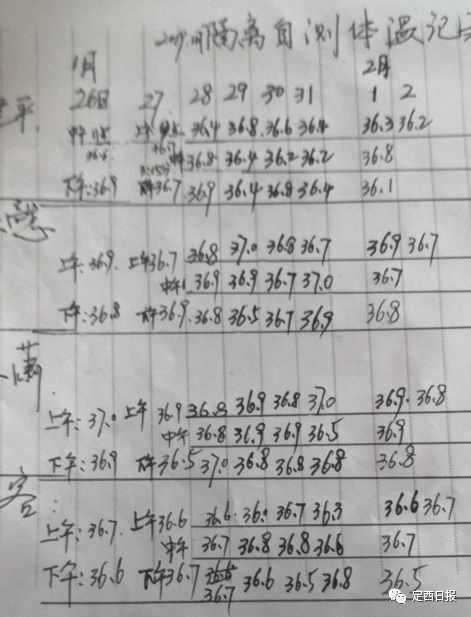 隔离自测体温记
1月 2月
26日 27 28 29 30 31 1 2
平
36.4 36.8 36.6 36.4 36.3 36.2
36.6 36.7 中午 36.8 36.4 36.2 36.2 36.8
下午:36.9 36.7 36.9 36.4 36.8 36.4 36.1
上午:36.9 上午36.7 36.8 37.0 36.8 36.7 36.9 36.7
中午 36.9 36.9 36.7 37.0 36.7
下午:36.8 下午36.9 36.8 36.5 36.7 36.9 36.8
上午:37.0 上午 36.9 36.8 36.9 36.8 37.0 36.9 36.8
中午 36.8 36.9 36.9 36.5 36.9
下午:36.9 下午36.5 37.0 36.8 36.8 36.8 36.8
容
上午:36.7 上午36.6 36.6 36.7 36.3 36.6 36.7
中午 36.7 36.8 36.8 36.6 36.7
下午:36.6 下午36.7 36.6 36.5 36.8 36.5
36.7
定西日报